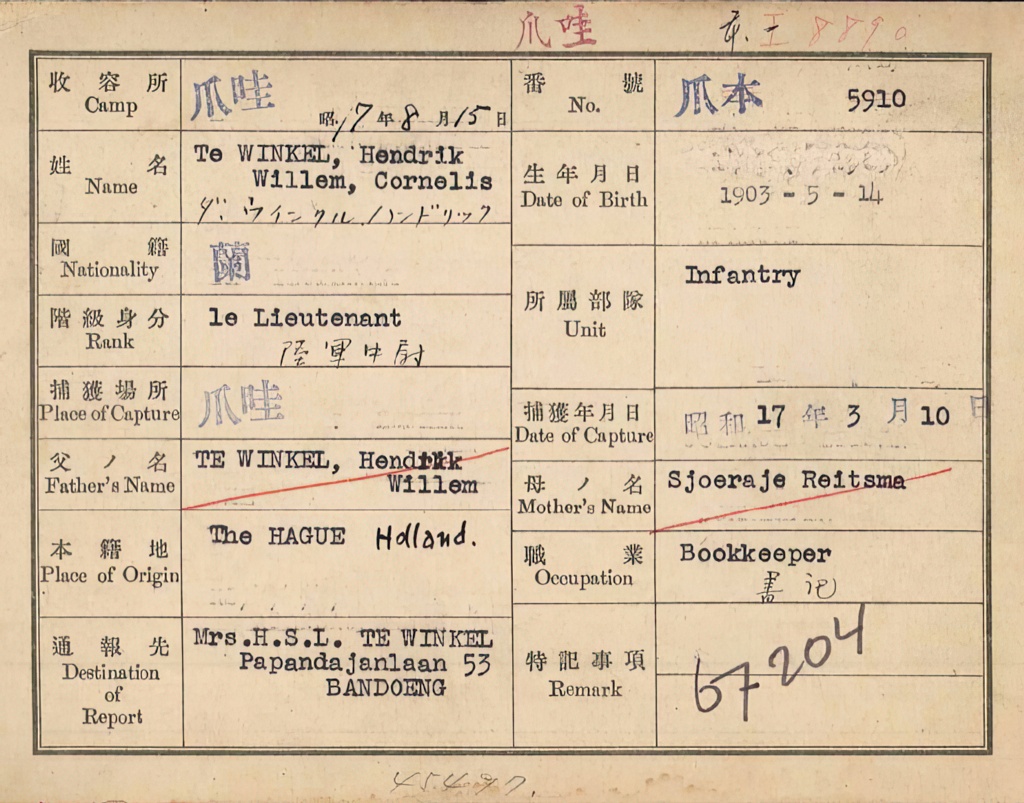 爪哇
I 8890
收容所
Camp
爪哇
昭17年8月15日
番號
No.
爪本 5910
姓名
Name
Te WINKEL, Hendrik
Willem, Cornelis
ダ.ウインクル.ハンドリック
生年月日
Date of Birth
1903 - 5 - 14
國籍
Nationality
蘭
所屬部隊
Unit
Infantry
階級身分
Rank
1e Lieutenant
陸軍中尉
捕獲場所
Place of Capture
爪哇
捕獲年月日
Date of Capture
昭和17年3月10日
父ノ名
Father's Name
TE WINKEL, Hendrik
Willem
母ノ名
Mother's Name
Sjoeraje Reitsma
本籍地
Place of Origin
The HAGUE Holland.
職業
Occupation
Bookkeeper
書記
通報先
Destination
of
Report
Mrs.H.S.L. TE WINKEL
Papandajanlaan 53
BANDOENG
特記事項
Remark
67204